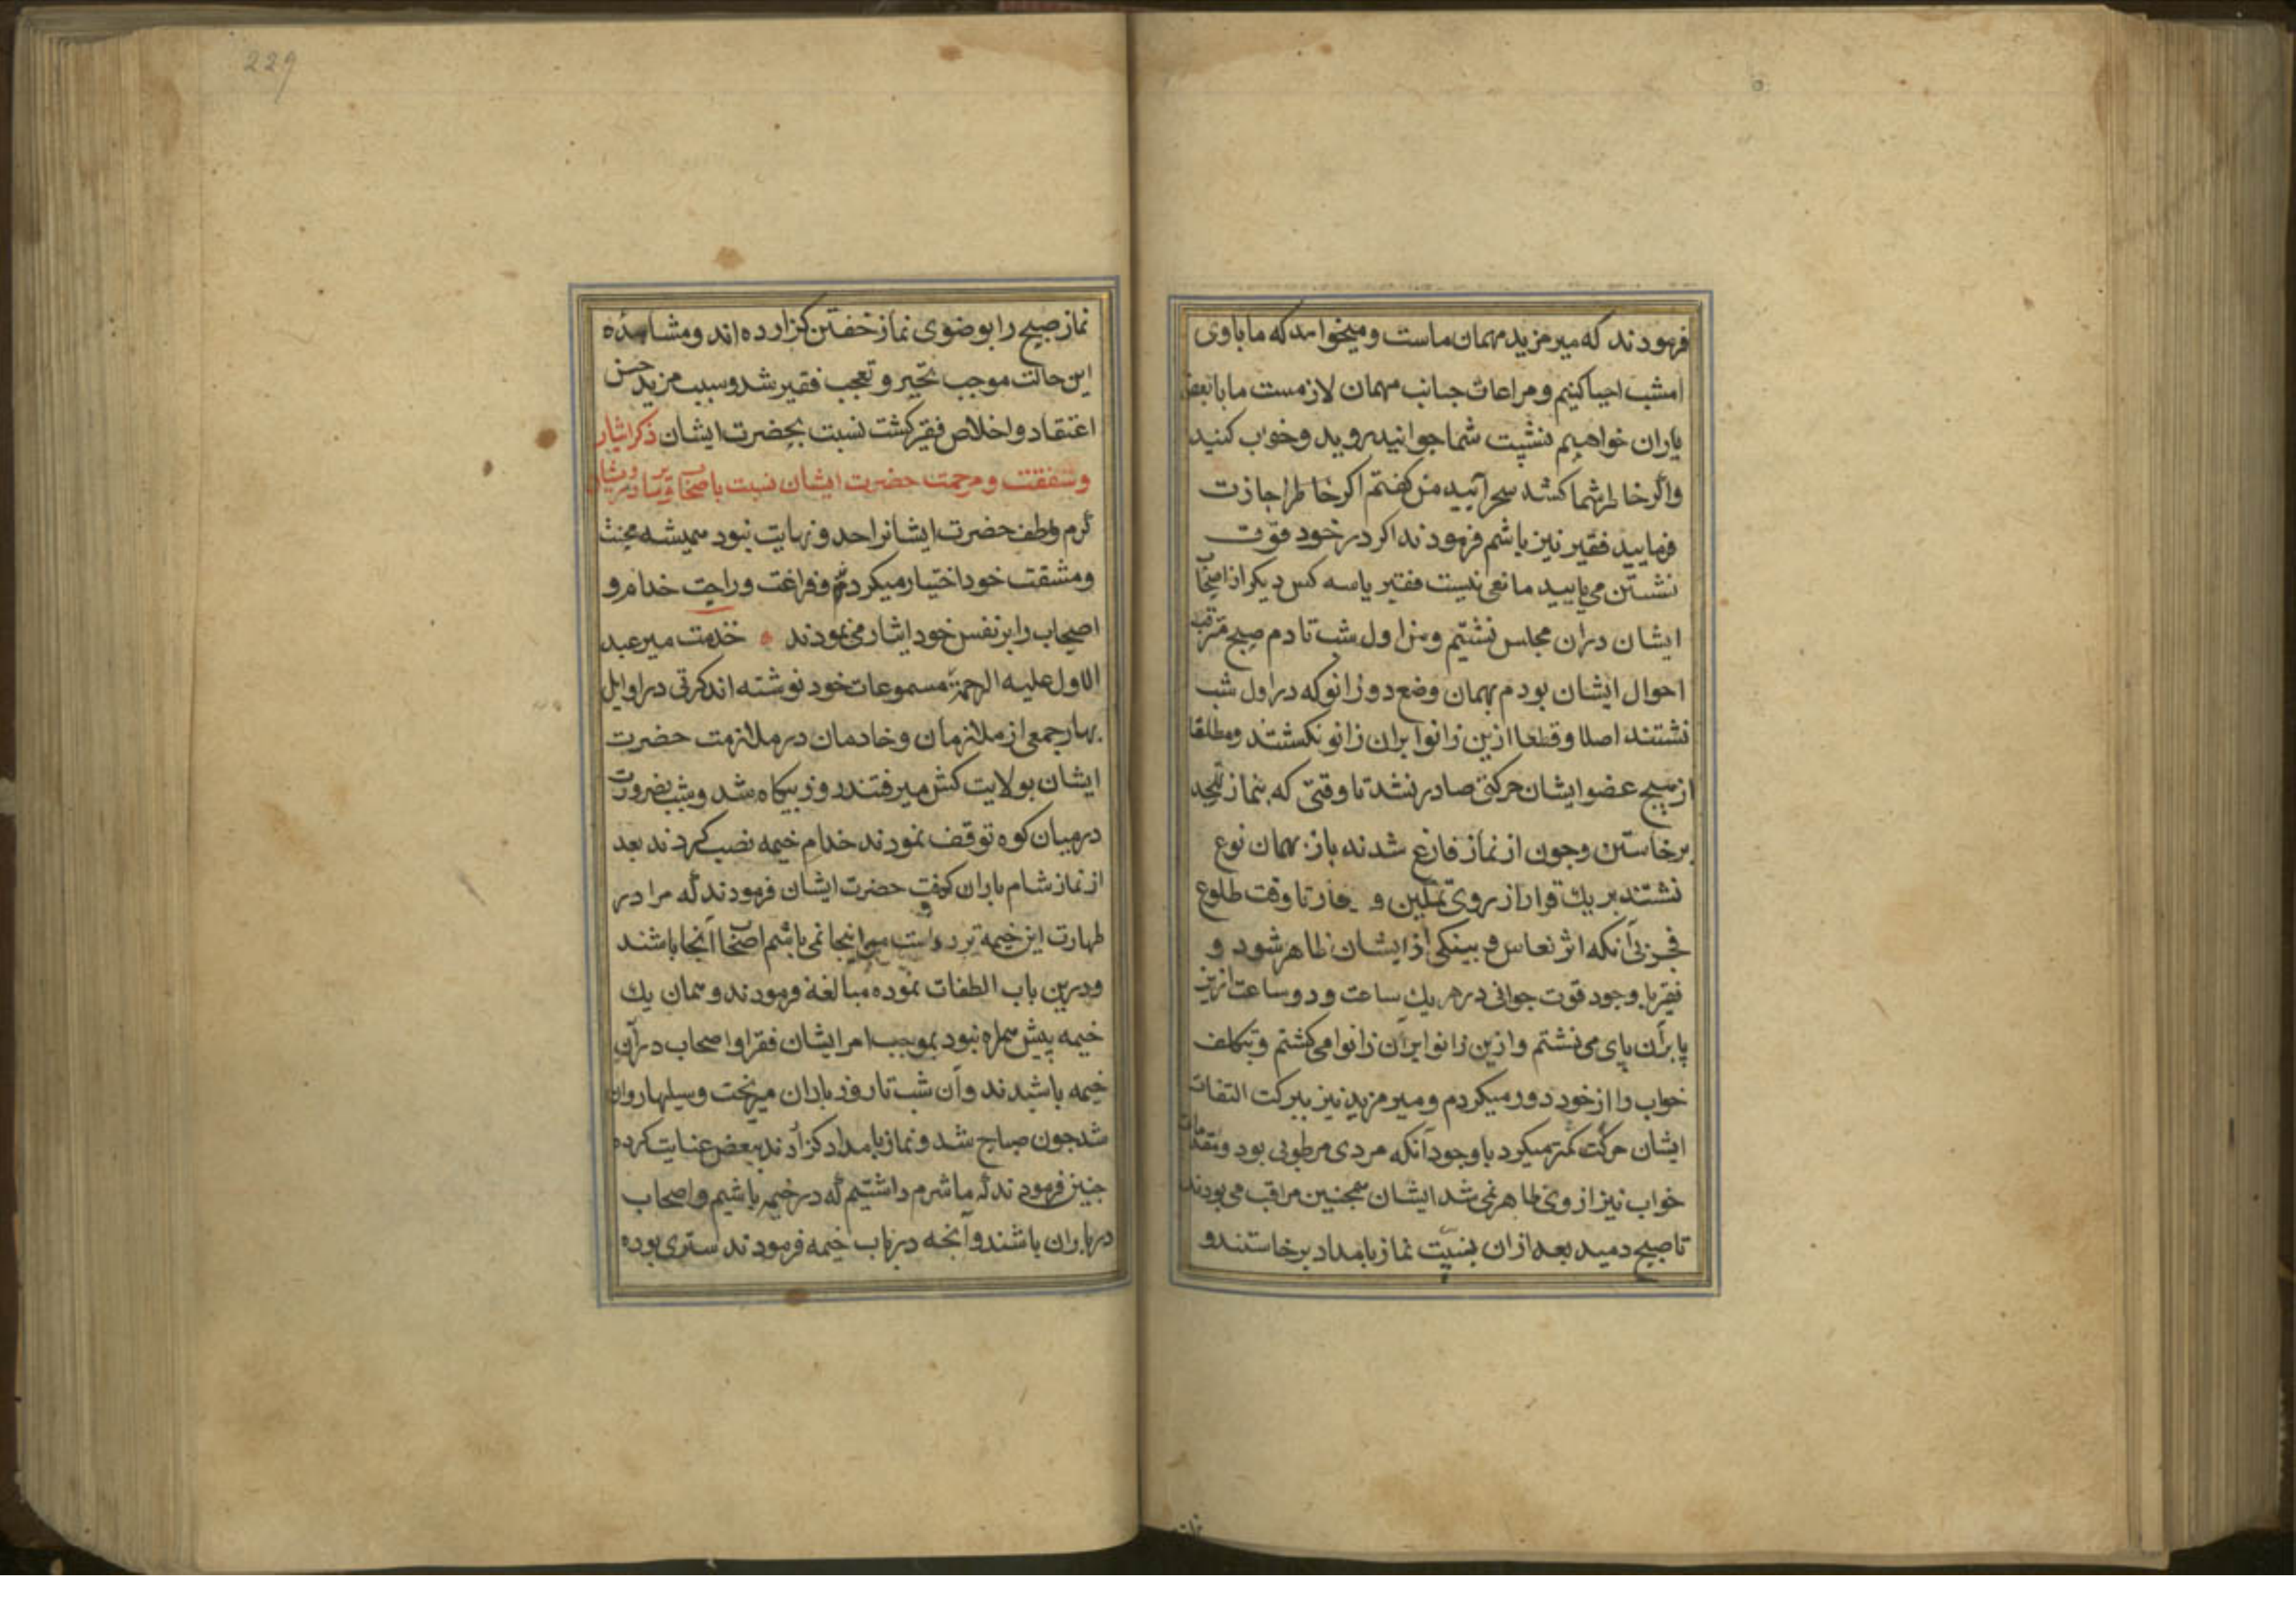 فرمودند که میر مزید مهمان ماست و میخواهد که ما با وی
امشب احیا کنیم و مراعات جانب مهمان لازمست ما با بعض
یاران خواهیم نشست شما جوانید بروید و خواب کنید
واگر خاطر شما کشد سحر آیید من کفتم اکر خاطر اجازت
فرمایید فقیر نیز باشم فرمودند اکر در خود قوّت
نشستن می یابید مانعی نیست فقیر با سه کس دیکر از اصحاب
ایشان دران مجلس نشتیم و من از اول شب تا دم صبح مترقب
احوال ایشان بودم بهمان وضع دو زانو که در اول شب
نشتند اصلا و قطعا ازین زانو بران زانو نکشتند و مطلقا
از هیچ عضو ایشان حرکتی صادر نشد تا وقتی که بنماز تهجد
برخاستن وجون از نماز فارغ شدند باز بهمان نوع
نشتند بر یک قرار از روی تمکین و تا وقت طلوع
فجر بی آنکه اثر نعاس و بینکی از ایشان ظاهر شود و
فقیر با وجود قوت جوانی در هر یک ساعت و دو ساعت ازین
پا بران پای می نشتم و ازین زانو ابران زانو امی کشتم و بتکلف
خواب را از خود دور میکردم و میر مزید نیز ببرکت التفات
ایشان حرکت کمتر میکرد با وجود آنکه مردی مرطوبی بود و مقدمات
خواب نیز از وی ظاهر نمی شد ایشان همجنین مراقب می بودند
تا صبح دمید بعد ازان بنیّت نماز بامداد برخاستند و
نماز صبح را بوضوی نماز خفتن کزارده اند و مشاهده
این حالت موجب تحیر و تعجب فقیر شد و سبب مزید حسن
اعتقاد و اخلاص فقیر کشت نسبت بحضرت ایشان ذکر ایثار
وشفقت و مرحمت حضرت ایشان نسبت باصحاب
کرم و لطف حضرت ایشانرا حد و نهایت نبود همیشه محنت
ومشقت خود اختیار میکردند و فراغت و راحت خدام و
اصحاب را بر نفس خود ایثار می نمودند خدمت میر عبد
الاول علیه الرحمة مسموعات خود نوشته اند کرتی در اوایل
بهار جمعی از ملازمان و خادمان در ملازمت حضرت
ایشان بولایت کش میرفتند روز بیکاه شد و شب بضرورت
در میان کوه توقف نمودند خدام خیمه نصب کردند بعد
از نماز شام باران کرفت حضرت ایشان فرمودند که مرا در
طهارت این خیمه تردد است من اینجا نمی باشم اصحاب آنجا باشند
ودرین باب الطفات نموده مبالغة فرمودند و همان یک
خیمه پیش همراه نبود بموجب امر ایشان فقرا و اصحاب دران
خیمه باشیدند وآن شب تا روز باران میریخت و سیلها روان
شد جون صباح شد و نماز بامداد کزاردند ببعض عنایت کرده
جنین فرمودند که ما شرم داشتیم که در خیمه باشیم و اصحاب
در باران باشند و آنجه در باب خیمه فرمودند ستری بوده